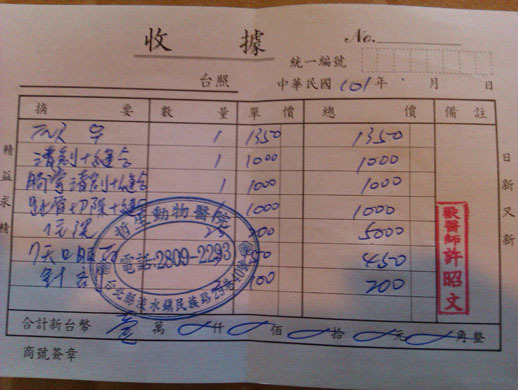 收 據
No.
統一編號
台照 中華民國 101 年 月 日
摘 要 數 量 單 價 總 價 備 註
1 1350 1350
清創+縫合 1 1000 1000
胸掌清創+縫合 1 1000 1000
切除+縫合 1 1000 1000
住院 5000
7天口服 450
針 200
哲生動物醫院
電話:2809-2293
台北縣淡水鎮民族路
獸醫師 許昭文
精益求精
日新又新
合計新台幣 壹 萬 仟 佰 拾 元 角整
商號簽章